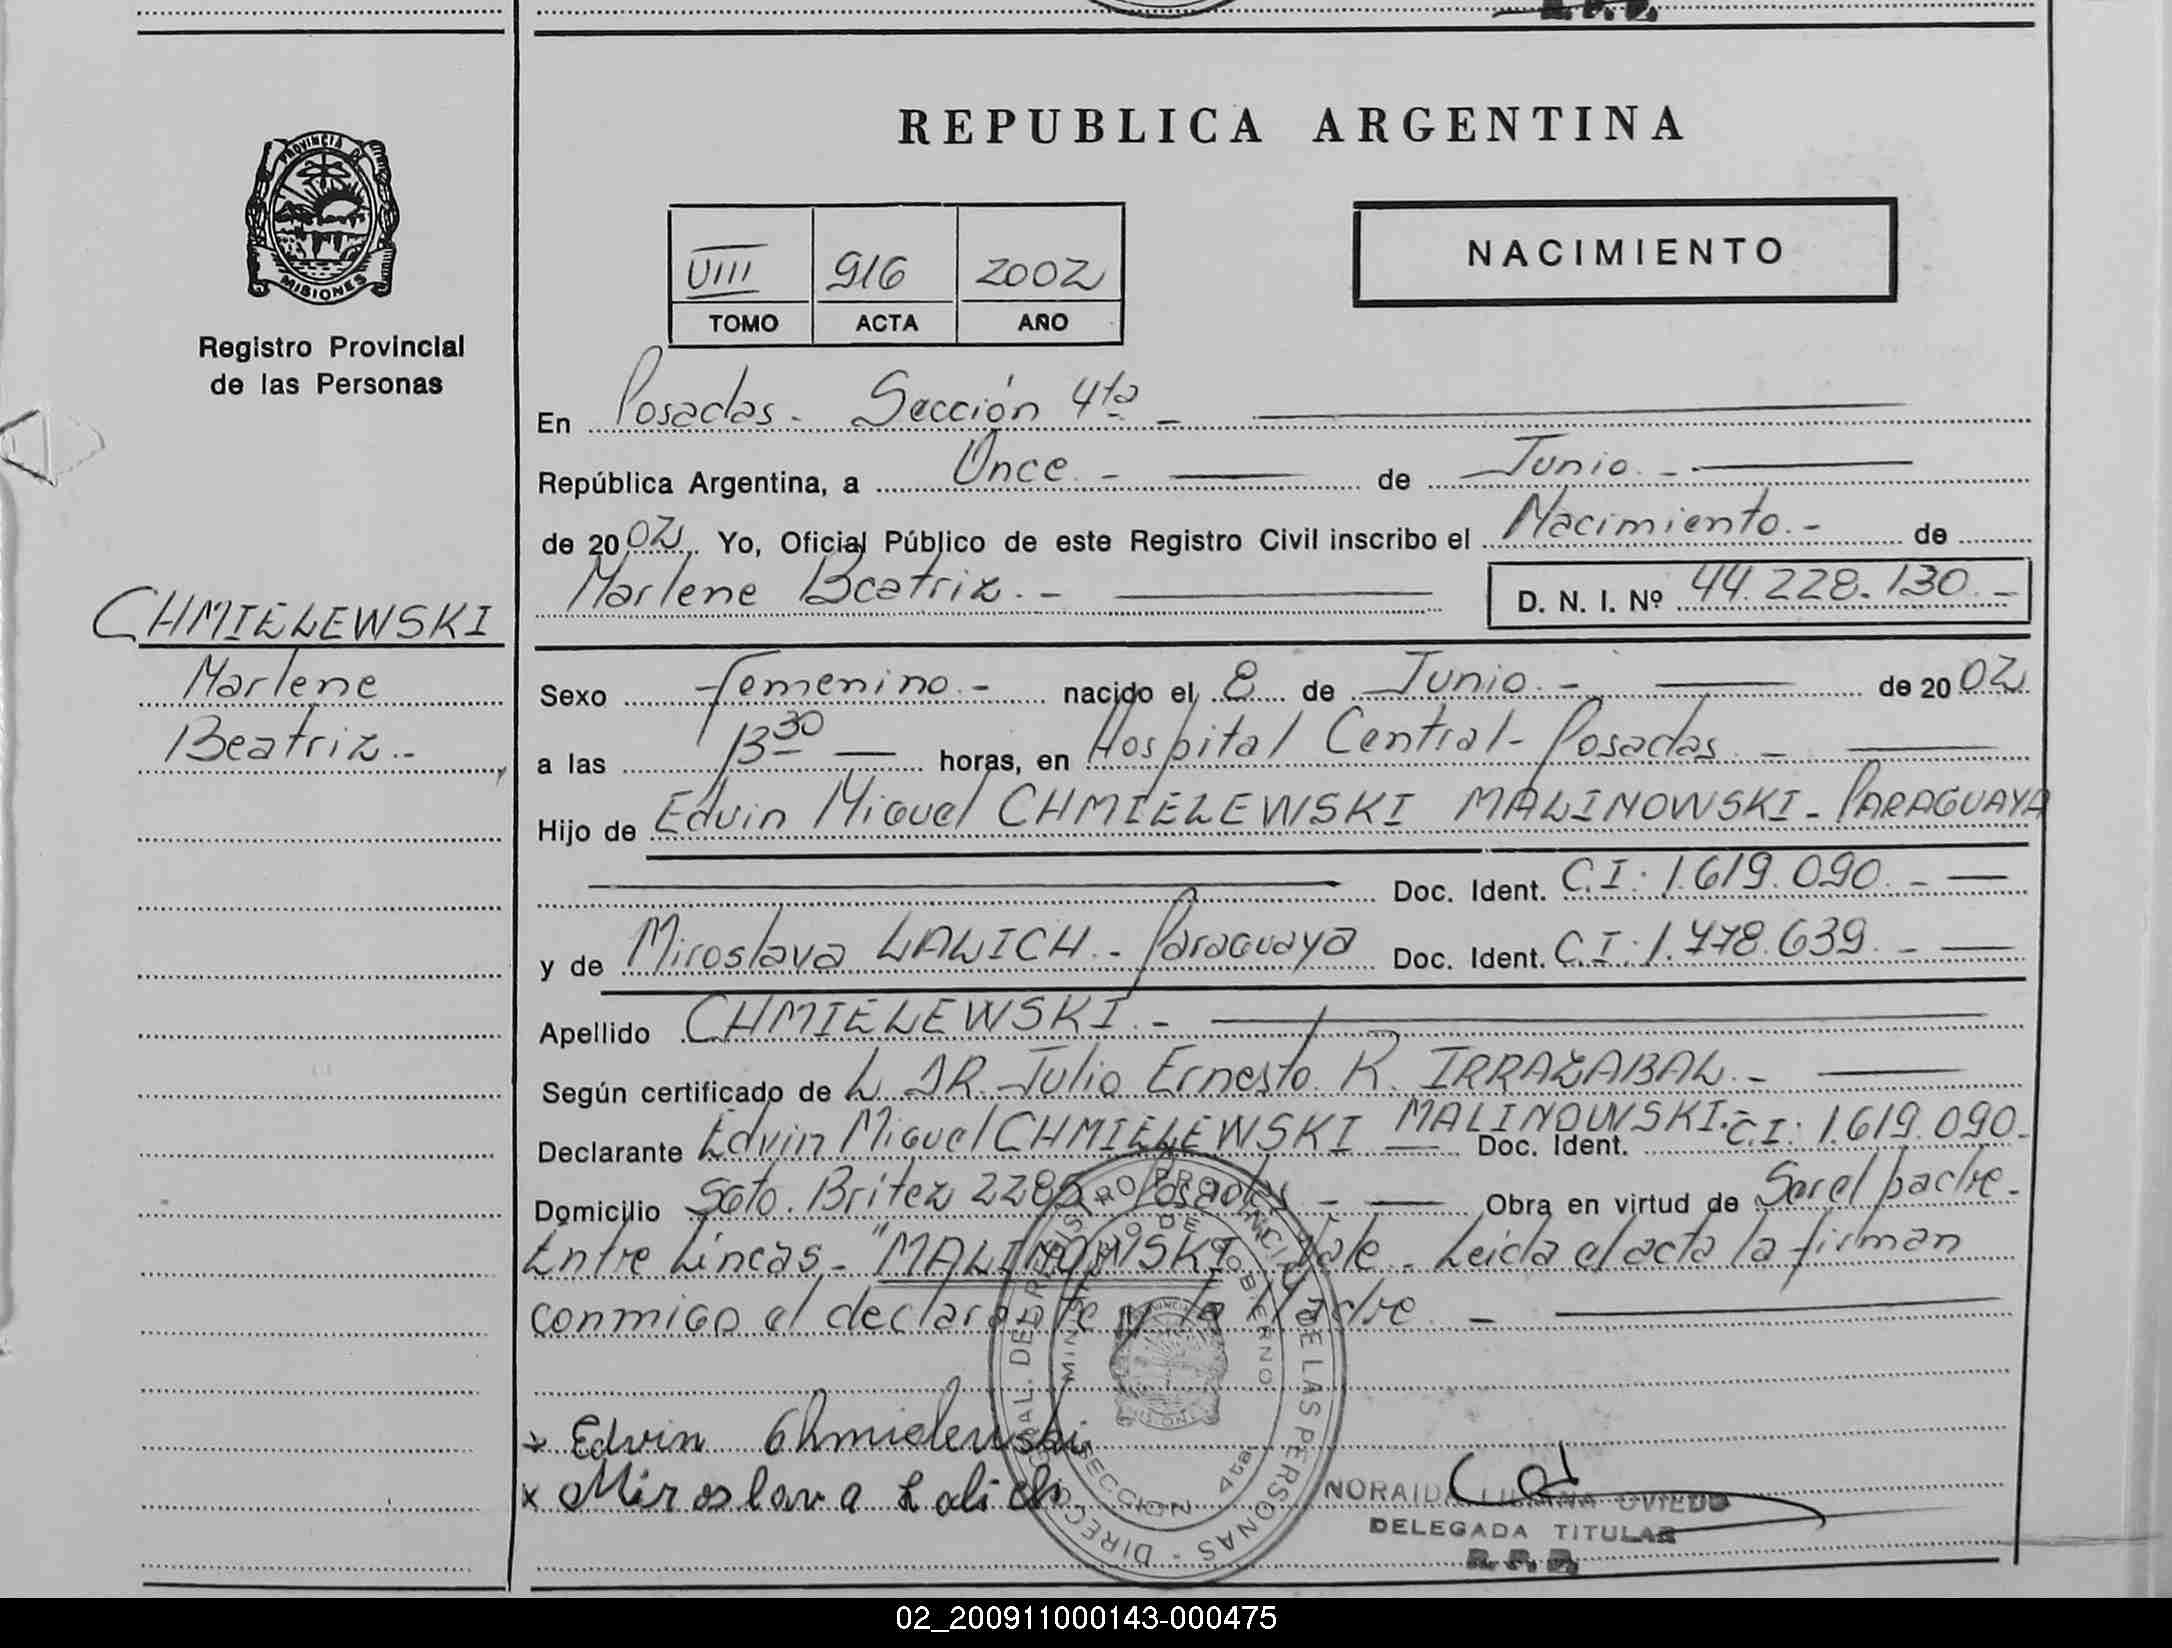 REPUBLICA ARGENTINA
PROVINCIA DE
MISIONES
Registro Provincial
de las Personas
NACIMIENTO
VIII 916 2002
TOMO ACTA AÑO
En Posadas - Sección 4ta -
República Argentina, a Once - de Junio -
de 2002 Yo, Oficial Público de este Registro Civil inscribo el Nacimiento - de
Marlene Beatriz - D. N. I. Nº 44.228.130 -
CHMIELEWSKI
Marlene
Beatriz -
Sexo Femenino - nacido el 8 de Junio - de 2002
a las 13 30 horas, en Hospital Central - Posadas -
Hijo de Edvin Miguel CHMIELEWSKI MALINOWSKI - PARAGUAYA
Doc. Ident. C.I: 1.619.090 -
y de Miroslava LALICH - Paraguaya Doc. Ident. C.I: 1.778.639 -
Apellido CHMIELEWSKI -
Según certificado de L DR. Julio Ernesto R. IRRAZABAL -
Declarante Edvin Miguel CHMIELEWSKI MALINOWSKI. Doc. Ident. C.I: 1.619.090 -
Domicilio Sgto. Britez 2285 Posadas - Obra en virtud de Ser el padre -
Entre Líneas - "MALINOWSKI Vale - Leida el acta la firman
conmigo el declarante y la Madre -
DIRECC. GRAL. DEL REGISTRO PROVINCIAL DE LAS PERSONAS -
MINISTERIO DE GOBIERNO
SECCION 4ta
x Edvin Chmielewski
x Miroslava Lalich
NORAIDA LILIANA OVIEDO
DELEGADA TITULAR
R. P. P.
02_200911000143-000475